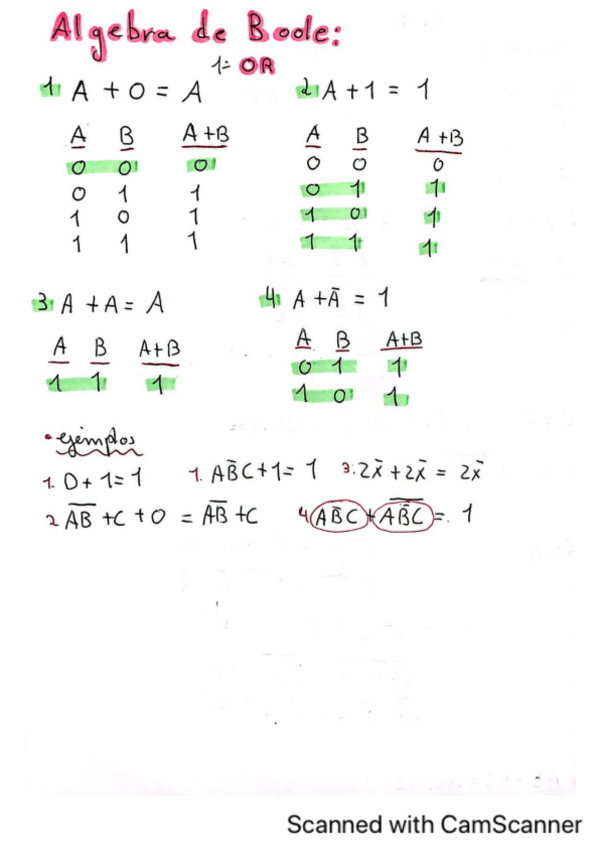 Algebra de Boole:
1- OR
1) A + 0 = A
A B A+B
0 0 0
0 1 1
1 0 1
1 1 1
2) A + 1 = 1
A B A+B
0 0 0
0 1 1
1 0 1
1 1 1
3) A + A = A
A B A+B
1 1 1
4) A + Ā = 1
A B A+B
0 1 1
1 0 1
• ejemplos
1. D + 1 = 1
1. AB̄C + 1 = 1
3. 2x̄ + 2x̄ = 2x̄
2 A̅B̅ + C + 0 = A̅B̅ + C
4 AB̄C + A̅B̅̄C̅ = 1
Scanned with CamScanner